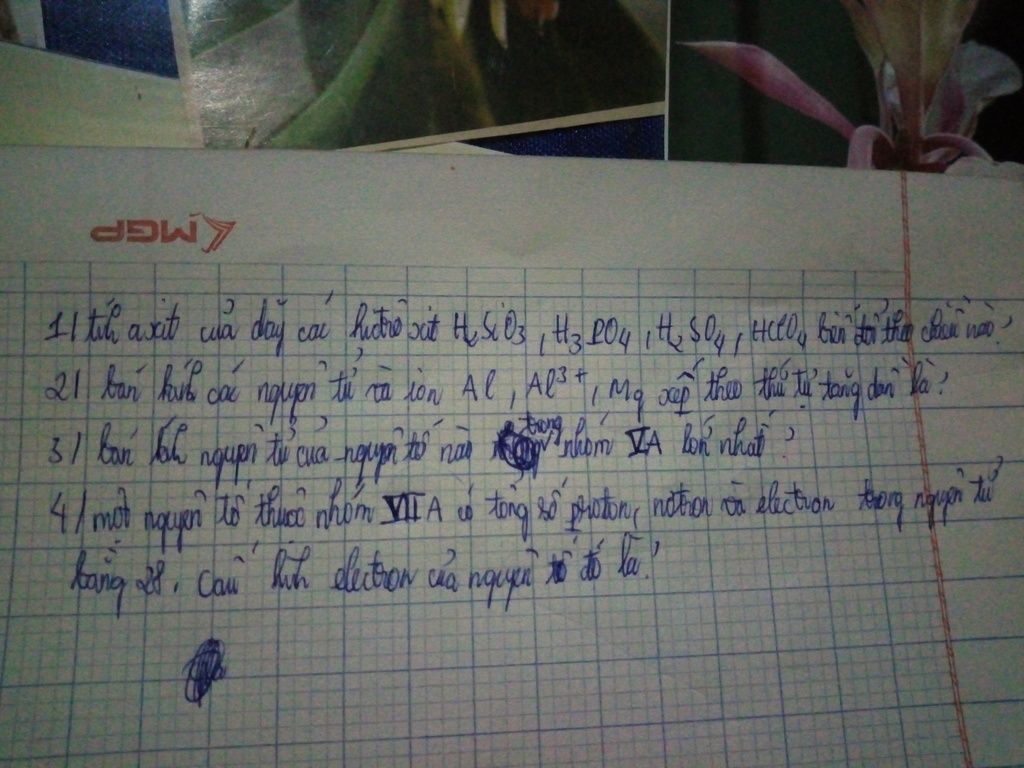 MGP
1/ tính axit của dãy các hiđrôxit H₂SiO₃, H₃PO₄, H₂SO₄, HClO₄ biến đổi theo chiều nào?
2/ bán kính các nguyên tử và ion Al, Al³⁺, Mg xếp theo thứ tự tăng dần là?
3/ bán kính nguyên tử của nguyên tố nào trong nhóm VA lớn nhất?
4/ một nguyên tố thuộc nhóm VIIA có tổng số proton, nơtron và electron trong nguyên tử
bằng 28. Cấu hình electron của nguyên tố đó là?